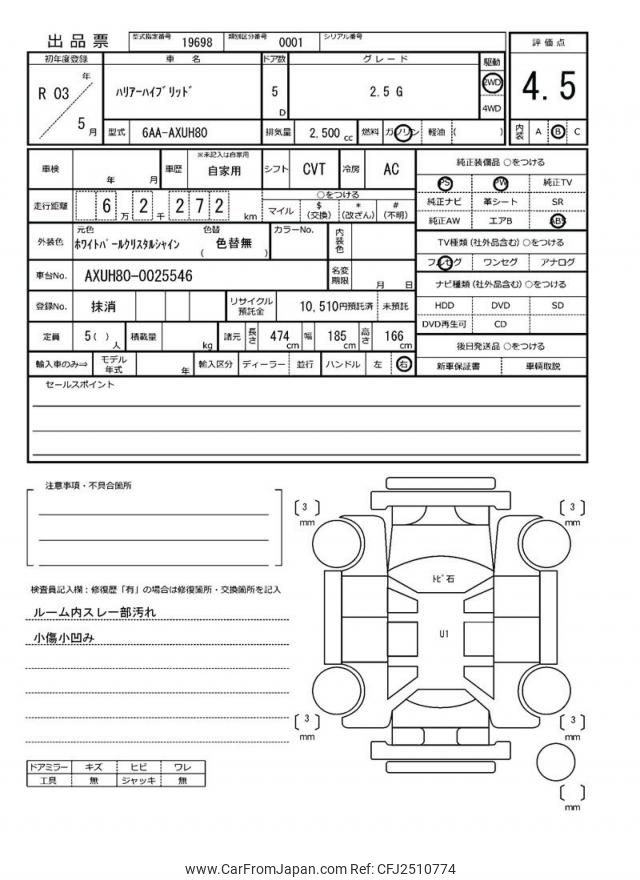 出品票 型式指定番号 19698 類別区分番号 0001 シリアル番号
初年度登録 車名 ドア数 グレード 駆動 評価点
R 03 年 5 月 ハリアーハイブリッド 5 D 2.5 G 2WD 4WD 4.5
型式 6AA-AXUH80 排気量 2,500 cc 燃料 ガソリン 軽油 ( ) 内装 A B C
車検 年 月 車歴 ※未記入は自家用 自家用 シフト CVT 冷房 AC 純正装備品 ○をつける
PS PW 純正TV
走行距離 6 万 2 千 2 7 2 km ○をつける 純正ナビ 革シート SR
マイル $ (交換) * (改ざん) # (不明) 純正AW エアB ABS
外装色 元色 ホワイトパールクリスタルシャイン 色替 ( 色替無 ) カラーNo. 内装色 TV種類 (社外品含む) ○をつける
フルセグ ワンセグ アナログ
車台No. AXUH80-0025546 名変期限 月 日 ナビ種類 (社外品含む) ○をつける
登録No. 抹消 リサイクル預託金 10,510円預託済 未預託 HDD DVD SD
DVD再生可 CD
定員 5 ( ) 人 積載量 kg 諸元 長さ 474 cm 幅 185 cm 高さ 166 cm 後日発送品 ○をつける
輸入車のみ⇒ モデル年式 年 輸入区分 ディーラー 並行 ハンドル 左 右 新車保証書 車輌取説
セールスポイント
注意事項・不具合箇所
検査員記入欄：修復歴「有」の場合は修復箇所・交換箇所を記入
ルーム内スレ一部汚れ
小傷小凹み
ドアミラー キズ ヒビ ワレ
工具 無 ジャッキ 無
[ 3 ] mm
[ 3 ] mm
トビ石
U1
[ 3 ] mm
[ 3 ] mm
[ ] mm
www.CarFromJapan.com Ref: CFJ2510774